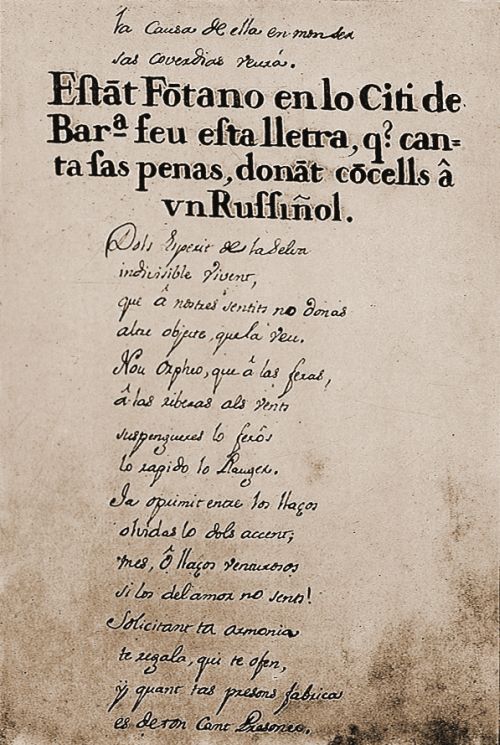 la causa de ella en mon der
sas coverdias veurá.
Eſtāt Fōtano en lo Citi de
Barª feu eſta lletra, q̃ can=
ta ſas penas, donāt cōcells â
vn Ruſſiñol.
Dols Esperit de la Selva
indivisible Vivent,
que â nostres sentits no donas
altre objecte, que la veu.
Nou Orpheo, que â las feras,
â las riberas als vents
suspengueres lo ferôs
lo rapido lo Lauger.
Ja oprimit entre los llaços
olvidas lo dols accent;
mes, Ô llaços venturosos
si los del amor no sents!
Solicitant ta armonia
te regala, qui te ofen,
ÿ quant tas presons fabrica
es de ton Cant Presoner.